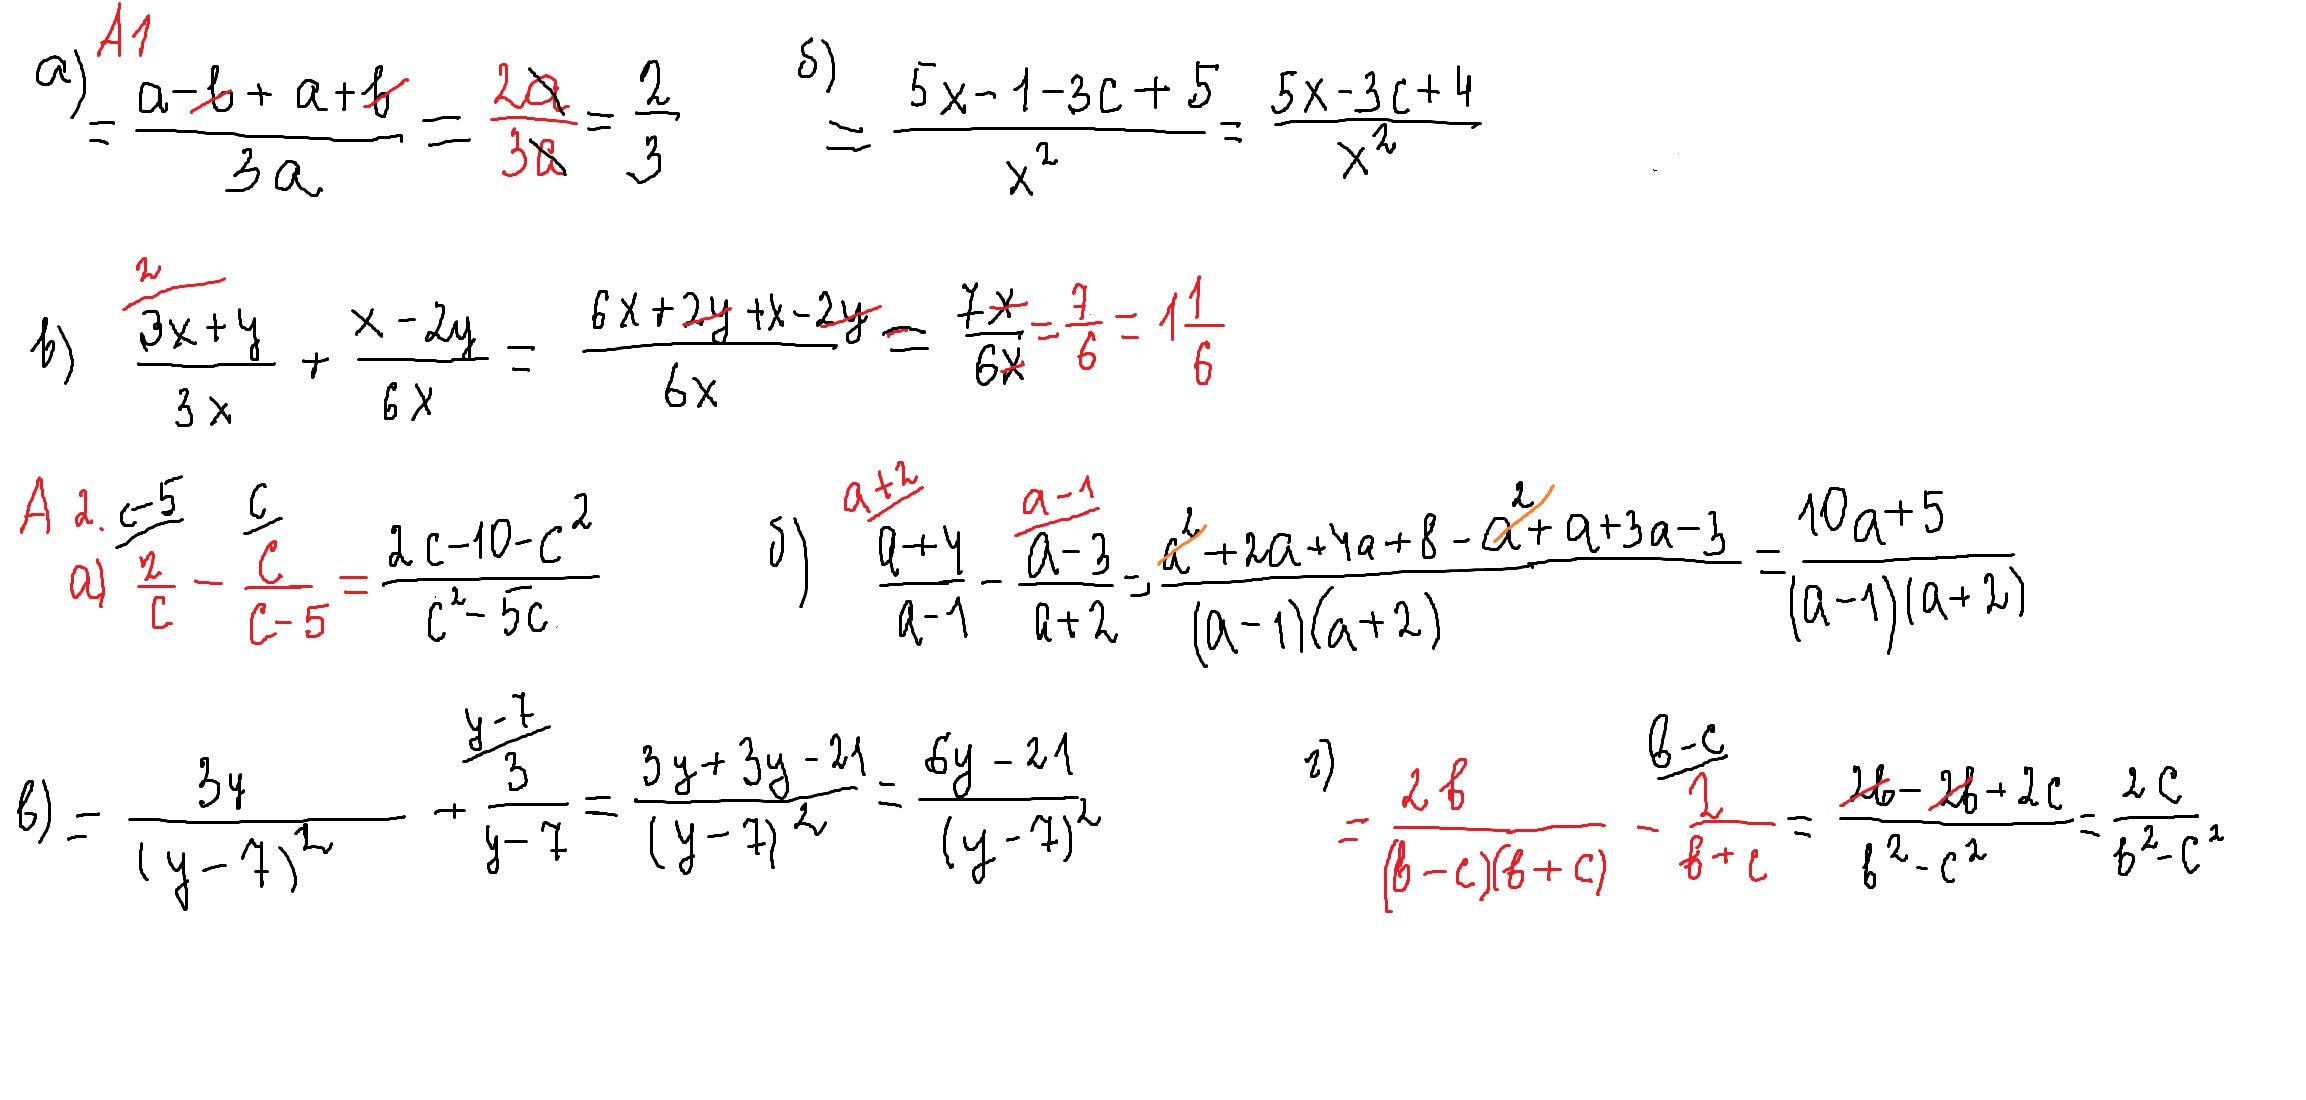 A1
а) = (a - b + a + b)/(3a) = 2a/3a = 2/3 б) = (5x - 1 - 3c + 5)/x² = (5x - 3c + 4)/x²
2
в) (3x + y)/(3x) + (x - 2y)/(6x) = (6x + 2y + x - 2y)/(6x) = 7x/6x = 7/6 = 1 1/6
A 2. c-5 c a+2 a-1
а) 2/c - c/(c-5) = (2c - 10 - c²)/(c² - 5c) б) (a+4)/(a-1) - (a-3)/(a+2) = (a² + 2a + 4a + 8 - a² + a + 3a - 3)/((a-1)(a+2)) = (10a + 5)/((a-1)(a+2))
y-7 b-c
в) = 3y/(y-7)² + 3/(y-7) = (3y + 3y - 21)/(y-7)² = (6y - 21)/(y-7)² г) = 2b/((b-c)(b+c)) - 2/(b+c) = (2b - 2b + 2c)/(b² - c²) = 2c/(b² - c²)